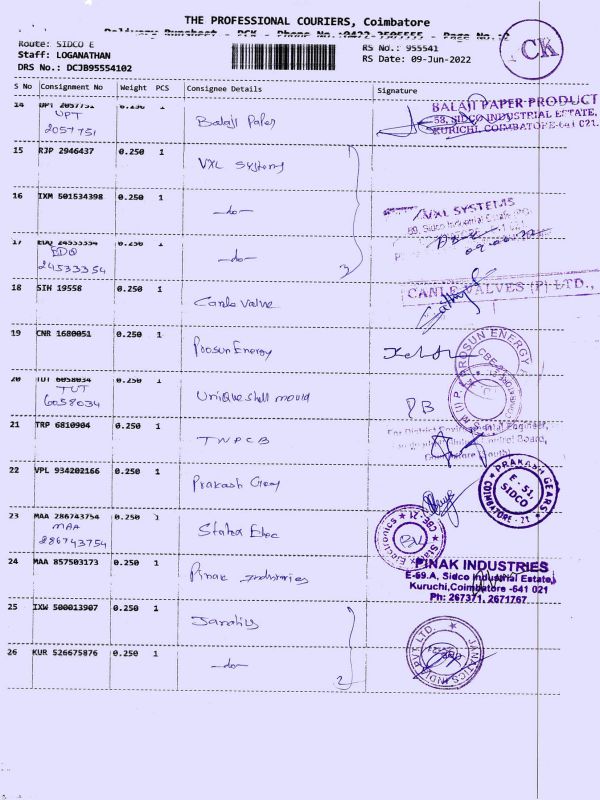 THE PROFESSIONAL COURIERS, Coimbatore
Delivery Runsheet - DCK - Phone No.:0422-3505555 - Page No.:2
Route: SIDCO E
Staff: LOGANATHAN
DRS No.: DCJB95554102
RS No.: 955541
RS Date: 09-Jun-2022
CK
S No Consignment No Weight PCS Consignee Details Signature
14 UPT 2057751 0.250 1 Balaji Paper
UPT
2057751
BALAJI PAPER PRODUCT
58, SIDCO INDUSTRIAL ESTATE,
KURICHI, COIMBATORE-641 021.
15 RJP 2946437 0.250 1 VXL Systems
16 IXM 501534398 0.250 1 -do-
VXL SYSTEMS
17 EDQ 24533354 0.250 1 -do-
EDQ
24533354
3
18 SIH 19558 0.250 1 Canle Valve
CANLE VALVES (P) LTD.,
19 CNR 1680051 0.250 1 Prosun Energy
20 TUT 6058034 0.250 1 Unique shell mould
TUT
6058034
PB
21 TRP 6810904 0.250 1 TNPCB
22 VPL 934202166 0.250 1 Prakash Gear
PRAKASH GEARS
E - 51,
SIDCO
COIMBATORE - 21
23 MAA 286743754 0.250 1 Statex Elec
MAA
286743754
Statex Electronics
CBE-21
24 MAA 857503173 0.250 1 Pinak Industries
PINAK INDUSTRIES
E-69.A, Sidco Industrial Estate,
Kuruchi,Coimbatore -641 021
Ph: 267371, 2671767
25 IXW 500013907 0.250 1 Janatics
26 KUR 526675876 0.250 1 -do-
2
JANATICS INDIA PVT. LTD.